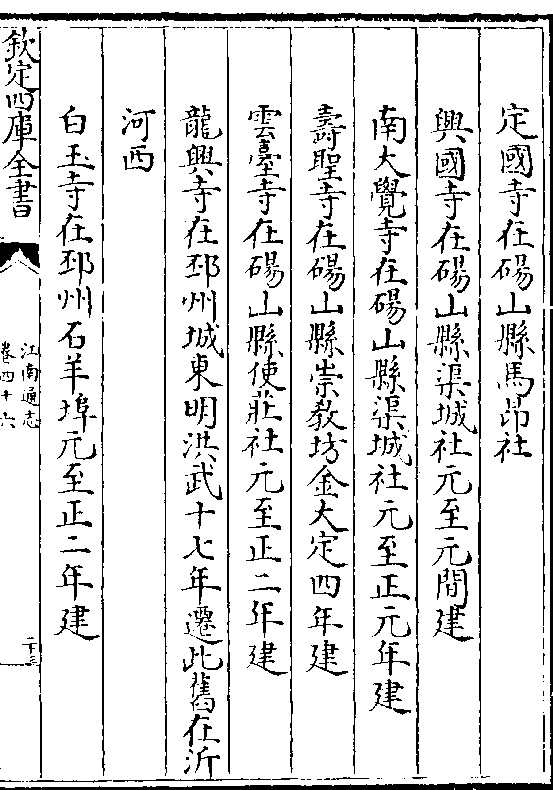 定國寺在碭山縣馬昂社
興國寺在碭山縣渠城社元至元間建
南大覺寺在碭山縣渠城社元至正元年建
壽聖寺在碭山縣崇教坊金大定四年建
雲臺寺在碭山縣使莊社元至正二年建
龍興寺在邳州城東明洪武十七年遷此舊在沂
河西
白玉寺在邳州石羊埠元至正二年建
欽定四庫全書
江南通志
卷四十六
二十三